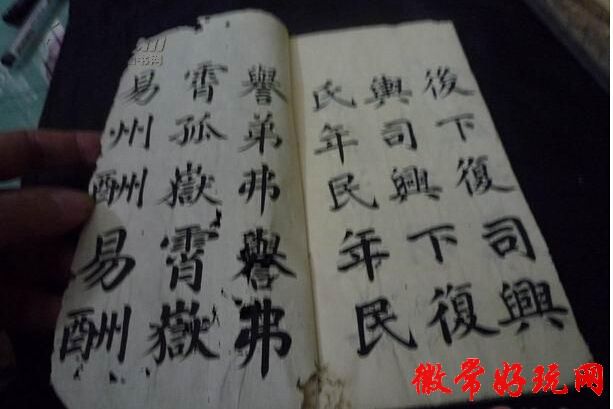 後下復司興
輿司興下復
氏年民年民
譽弟弗譽弗
霄孤嶽霄嶽
易州酬易酬
书网
徽常好玩网